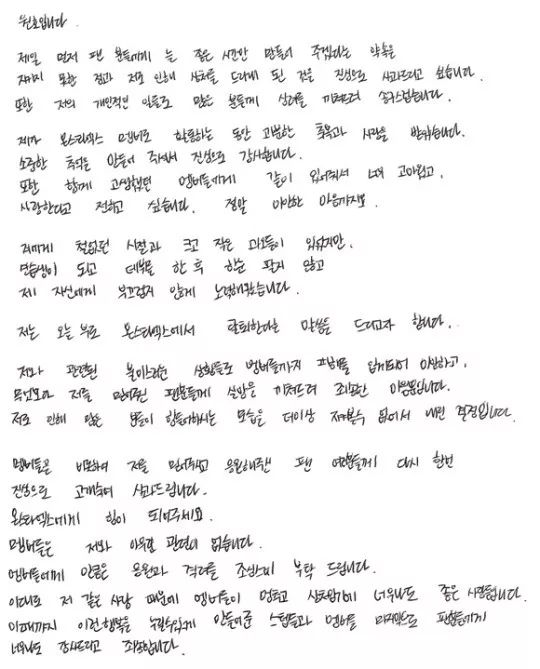 원호입니다.
제일 먼저 팬 분들에게 늘 좋은 시간만 만들어 주겠다는 약속을
지키지 못한 점과 저로 인해 상처를 드리게 된 것을 진심으로 사과드리고 싶습니다.
또한 저의 개인적인 일들로 많은 분들께 심려를 끼쳐드려 송구스럽습니다.
제가 몬스타엑스 멤버로 활동하는 동안 과분한 축복과 사랑을 받았습니다.
소중한 추억을 만들어 주셔서 진심으로 감사합니다.
또한 함께 고생했던 멤버들에게 같이 있어줘서 너무 고마웠고,
사랑한다고 전하고 싶습니다. 정말 미안한 마음까지도
저에게 철없던 시절과 크고 작은 과오들이 있었지만,
연습생이 되고 데뷔를 한 후 한눈 팔지 않고
제 자신에게 부끄럽지 않게 노력해왔습니다.
저는 오늘 부로 몬스타엑스에서 탈퇴한다는 말씀을 드리고자 합니다.
저와 관련된 불미스러운 상황들로 멤버들까지 피해를 입게되어 미안하고,
무엇보다 저를 믿어준 팬분들께 실망을 끼쳐드려 죄송한 마음뿐입니다.
저로 인해 많은 분들이 힘들어하시는 모습을 더이상 지켜볼수 없어서 내린 결정입니다.
멤버들을 비롯하여 저를 믿어주시고 응원해주셨던 팬 여러분들께 다시 한번
진심으로 고개숙여 사과드립니다.
몬스타엑스에게 힘이 되어주세요.
멤버들은 저와 아무런 관련이 없습니다.
멤버들에게 만큼은 응원과 격려를 조심스레 부탁 드립니다.
이대로 저 같은 사람 때문에 멤버들이 멈추고 상처받기에 너무나도 좋은 사람들입니다.
이때까지 이런행복을 누릴수있게 만들어준 스텝들과 멤버들 마지막으로 팬분들에게
너무나도 감사드리고 죄송합니다.